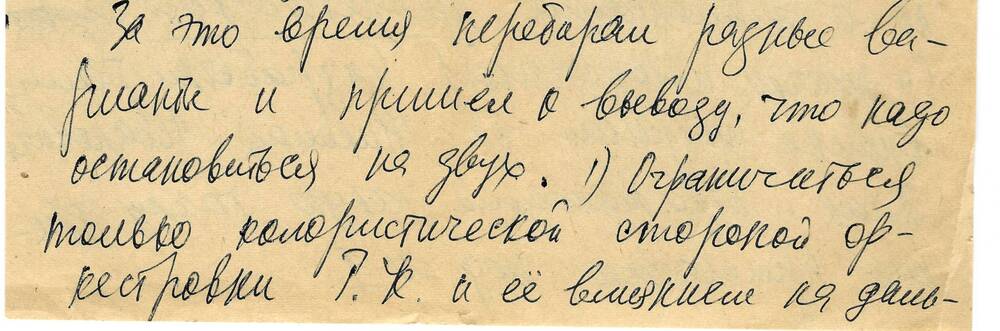 За это время перебирал разные ва-
рианты и пришел к выводу, что надо
остановиться на звух. 1) Ограничиться
только колористической стороной ор-
кестровки Р. К. и её влиянием на даль-